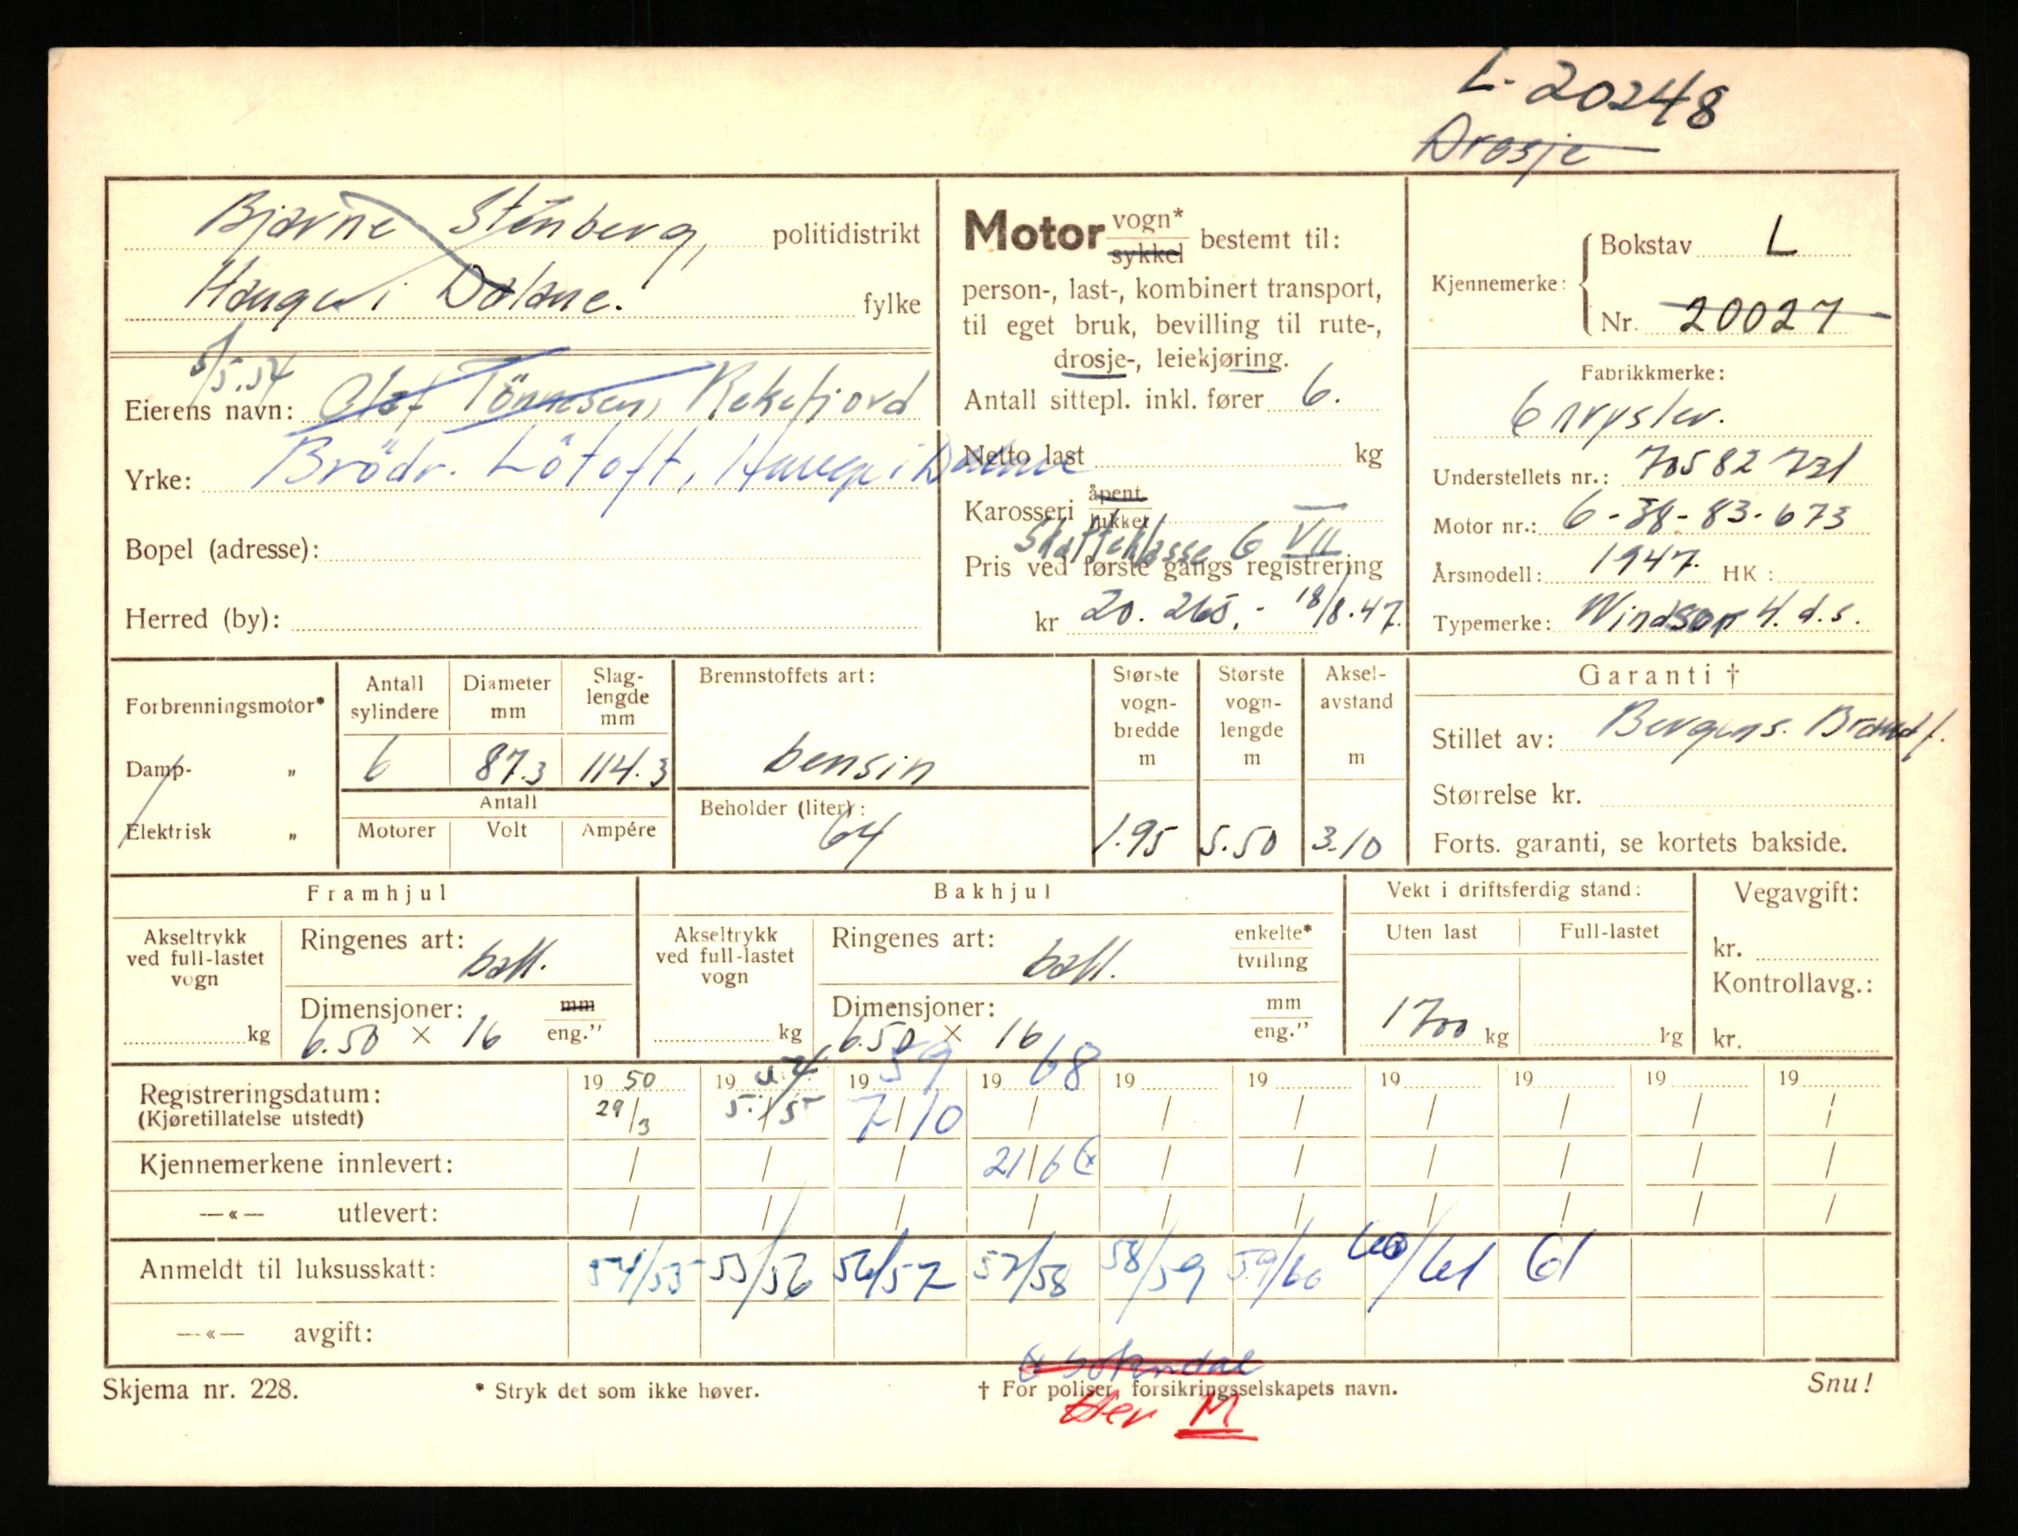 L-20248
Drosje
Bjarne Stenberg, politidistrikt
Hauge i Dalane. fylke
5/5.54
Eierens navn: Olaf Tönnesen, Rekefjord
Yrke: Brödr. Lötoft, Hauge i Dalane
Bopel (adresse):
Herred (by):
Motor vogn* sykkel bestemt til:
person-, last-, kombinert transport,
til eget bruk, bevilling til rute-,
drosje-, leiekjøring.
Antall sittepl. inkl. fører 6.
Netto last kg
Karosseri åpent lukket
Skatteklasse 6 VII
Pris ved første gangs registrering
kr 20.265,- 18/8.47.
Kjennemerke: Bokstav L
Nr. 20027
Fabrikkmerke:
Chrysler.
Understellets nr.: 70582731
Motor nr.: 6-38-83-673
Årsmodell: 1947. HK:
Typemerke: Windsor 4.d.s.
Forbrenningsmotor*
Damp- „
Elektrisk „
Antall sylindere
Diameter mm
Slag-lengde mm
6 87.3 114.3
Antall
Motorer Volt Ampére
Brennstoffets art:
bensin
Beholder (liter):
64
Største vogn-bredde m
Største vogn-lengde m
Aksel-avstand m
1.95 5.50 3.10
Garanti †
Stillet av: Bergens. Brandf.
Størrelse kr.
Forts. garanti, se kortets bakside.
Framhjul
Akseltrykk ved full-lastet vogn
kg
Ringenes art: ball.
Dimensjoner: mm
6.50 × 16 eng.”
Bakhjul
Akseltrykk ved full-lastet vogn
kg
Ringenes art: ball. enkelte* tvilling
Dimensjoner: mm
6.50 × 16 eng.”
Vekt i driftsferdig stand:
Uten last Full-lastet
1700 kg kg
Vegavgift:
kr.
Kontrollavg.:
kr.
Registreringsdatum: 19 50 19 54 19 59 19 68 19 19 19 19 19 19
(Kjøretillatelse utstedt) 29/3 5./5 7/10 / / / / / / /
Kjennemerkene innlevert: / / / 21/6 / / / / / /
—«— utlevert: / / / / / / / / / /
Anmeldt til luksusskatt: 54/55 55/56 56/57 57/58 58/59 59/60 60/61 61
—«— avgift:
Sokndal
Skjema nr. 228.
* Stryk det som ikke høver.
† For poliser, forsikringsselskapets navn.
Snu!
Her M